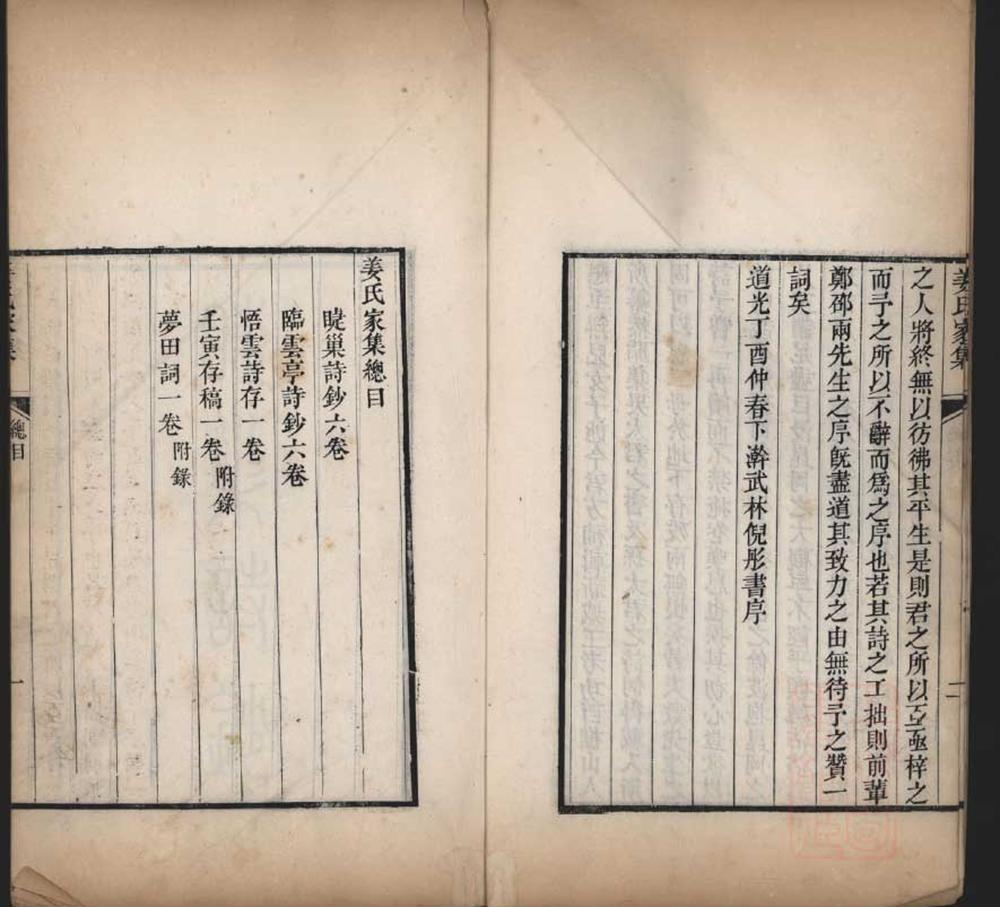 姜氏家集
二
之人將終無以彷彿其平生是則君之所以亟亟梓之
而予之所以不辭而爲之序也若其詩之工拙則前輩
鄭邵兩先生之序旣盡道其致力之由無待予之贊一
詞矣
道光丁酉仲春下澣武林倪彤書序
姜氏家集總目
曉巢詩鈔六卷
臨雲亭詩鈔六卷
悟雲詩存一卷
壬寅存稿一卷 附錄
夢田詞一卷 附錄
姜氏家集
總目
一